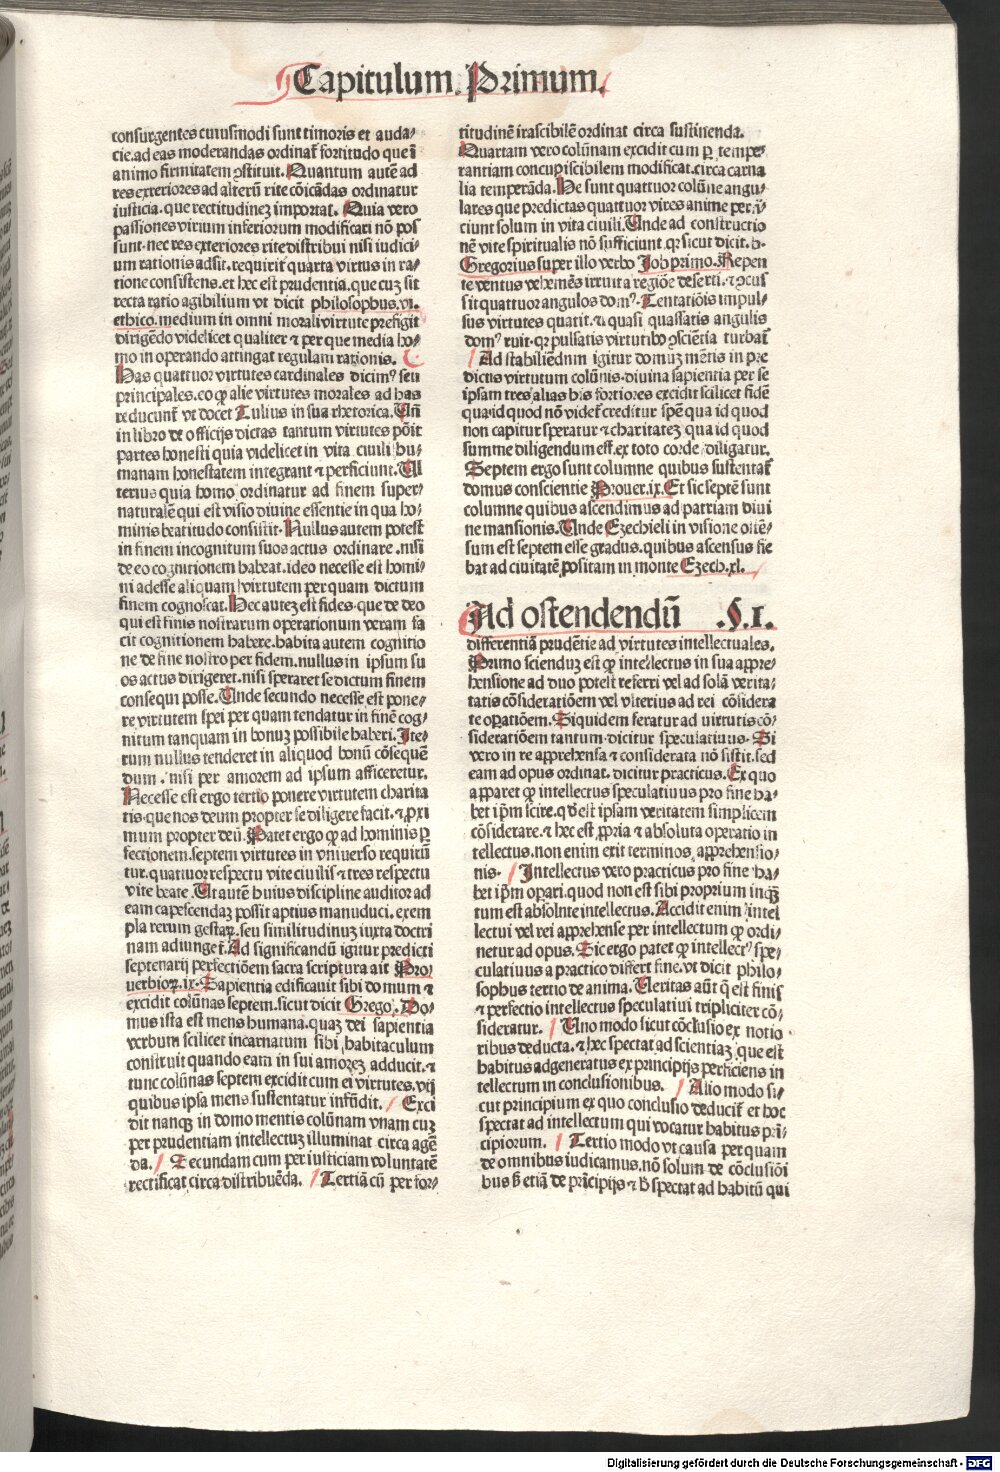 Capitulum. Primum.
consurgentes cuiusmodi sunt timoris et auda⸗
cie. ad eas moderandas ordinat᷑ fortitudo que ĩ
animo firmitatem ꝯstituit. Quantum autẽ ad
res exteriores ad alterũ rite cõicãdas ordinatur
iusticia. que rectitudineꝫ importat. Quia vero
passiones virium inferiorum modificari nõ pos
sunt. nec res exteriores rite distribui nisi iudici⸗
um rationis adsit. requirit᷑ quarta virtus in ra⸗
tione consistens. et hec est prudentia. que cuꝫ sit
recta ratio agibilium vt dicit philosophus. vi.
ethico. medium in omni morali virtute prefigit
dirigẽdo videlicet qualiter ⁊ per que media ho⸗
mo in operando attingat regulam rationis.
Has quattuor virtutes cardinales dicimꝰ seu
principales. eo ꝙ alie virtutes morales ad has
reducunt᷑ vt docet Tulius in sua rhetorica. Uñ
in libro de officijs dictas tantum virtutes põit
partes honesti quia videlicet in vita ciuili hu⸗
manam honestatem integrant ⁊ perficiunt. Ul
terius quia homo ordinatur ad finem super⸗
naturalẽ qui est visio diuine essentie in qua ho⸗
minis beatitudo consistit. Nullus autem potest
in finem incognitum suos actus ordinare. nisi
de eo cognitionem habeat. ideo necesse est homi⸗
ni adesse aliquam virtutem per quam dictum
finem cognoscat. Hec auteꝫ est fides. que de deo
qui est finis nostrarum operationum veram fa
cit cognitionem habere. habita autem cognitio
ne de fine nostro per fidem. nullus in ipsum su
os actus dirigeret. nisi speraret se dictum finem
consequi posse. Unde secundo necesse est pone⸗
re virtutem spei per quam tendatur in finẽ cog⸗
nitum tanquam in bonuꝫ possibile haberi. Ite⸗
rum nullus tenderet in aliquod bonũ cõsequẽ
dum. nisi per amorem ad ipsum afficeretur.
Necesse est ergo tertio ponere virtutem charita
tis. que nos deum propter se diligere facit. ⁊ ꝓxi
mum propter deũ. Patet ergo ꝙ ad hominis ꝑ
fectionem. septem virtutes in vniuerso requirũ
tur. quattuor respectu vite ciuilis ⁊ tres respectu
vite beate. Ut autẽ huius discipline auditor ad
eam capescendaꝫ possit aptius manuduci. exem
pla rerum gestaꝝ. seu similitudinuꝫ iuxta doctri
nam adiunget᷑. Ad significandũ igitur predicti
septenarij perfectiõem sacra scriptura ait Pro⸗
uerbioꝝ. ix. Sapientia edificauit sibi domum ⁊
excidit colũnas septem. sicut dicit Grego. Do⸗
mus ista est mens humana. quaꝫ dei sapientia
verbum scilicet incarnatum sibi habitaculum
construit quando eam in sui amoreꝫ adducit. ⁊
tunc colũnas septem excidit cum ei virtutes. vtꝫ
quibus ipsa mens sustentatur infũdit. Exci
dit nanqꝫ in domo mentis colũnam vnam cuꝫ
per prudentiam intellectuꝫ illuminat circa agẽ
da. Secundam cum per iusticiam voluntatẽ
rectificat circa distribuẽda. Tertiã cũ per for⸗
titudinẽ irascibilẽ ordinat circa sustinenda.
Quartam vero colũnam excidit cum ꝑ tempe⸗
rantiam concupiscibilem modificat. circa carna
lia temperãda. He sunt quattuor colũne angu⸗
lares que predictas quattuor vires anime perfi
ciunt solum in vita ciuili. Unde ad constructio
nẽ vite spiritualis nõ sufficiunt. qꝛ sicut dicit. b.
Gregorius super illo verbo Job primo. Repen
te ventus vehemẽs irruit a regiõe deserti. ⁊ ꝯcus
sit quattuor angulos domꝰ. Tentatiõis impul⸗
sus virtutes quatit. ⁊ quasi quassatis angulis
domꝰ ruit. qꝛ pulsatis virtutibꝰ ꝯscientia turbat᷑
Ad stabiliendum igitur domuꝫ mẽtis in pre
dictis virtutum colũnis. diuina sapientia per se
ipsam tres alias his fortiores excidit scilicet fidẽ
qua id quod nõ videt᷑ creditur spẽ qua id quod
non capitur speratur ⁊ charitateꝫ qua id quod
summe diligendum est. ex toto corde diligatur.
Septem ergo sunt columne quibus sustentat᷑
domus conscientie Prouer. ix. Et sic septẽ sunt
columne quibus ascendimus ad patriam diui
ne mansionis. Unde Ezechieli in visione ostẽ⸗
sum est septem esse gradus. quibus ascensus fie
bat ad ciuitatẽ positam in monte Ezech. xl.
Ad ostendendũ .§. I.
differentiã prudẽtie ad virtutes intellectuales.
Primo sciendum est ꝙ intellectus in sua appre⸗
hensione ad duo potest referri vel ad solã verita⸗
tatis cõsiderationem vel vlterius ad rei cõsidera
te oꝑatiõem. Siquidem feratur ad uirtutis cõ⸗
sideratiõem tantum. dicitur speculatiuus. Si
vero in re apprehensa ⁊ considerata nõ sistit. sed
eam ad opus ordinat. dicitur practicus. Ex quo
apparet ꝙ intellectus speculatiuus pro fine ha⸗
bet ip̃m scire. qd̓ est ipsam veritatem simplicem
cõsiderare. ⁊ hec est ꝓpria ⁊ absoluta operatio in
tellectus. non enim exit terminos apprehensio⸗
nis. Intellectus vero practicus pro fine ha⸗
bet ip̃m oꝑari. quod non est sibi proprium inqꝫ
tum est absolute intellectus. Accidit enim intel
lectui vel rei apprehense per intellectum ꝙ ordi⸗
netur ad opus. Sic ergo patet ꝙ intellectꝰ spe⸗
culatiuus a practico differt fine. vt dicit philo⸗
sophus tertio de anima. Ueritas aũt q̃ est finis
⁊ perfectio intellectus speculatiui tripliciter cõ⸗
sideratur. Uno modo sicut cõclusio ex notio
ribus deducta. ⁊ hec spectat ad scientiaꝫ que est
habitus adgeneratus ex principijs perficiens in
tellectum in conclusionibus. Alio modo si⸗
cut principium ex quo conclusio deducit᷑ et hoc
spectat ad intellectum qui vocatur habitus prĩ⸗
cipiorum. Tertio modo vt causa per quam
de omnibus iudicamus. nõ solum de cõclusiõi
bus sꝫ etiã de prĩcipijs ⁊ h̓ spectat ad habitũ qui
Digitalisierung gefördert durch die Deutsche Forschungsgemeinschaft - DFG